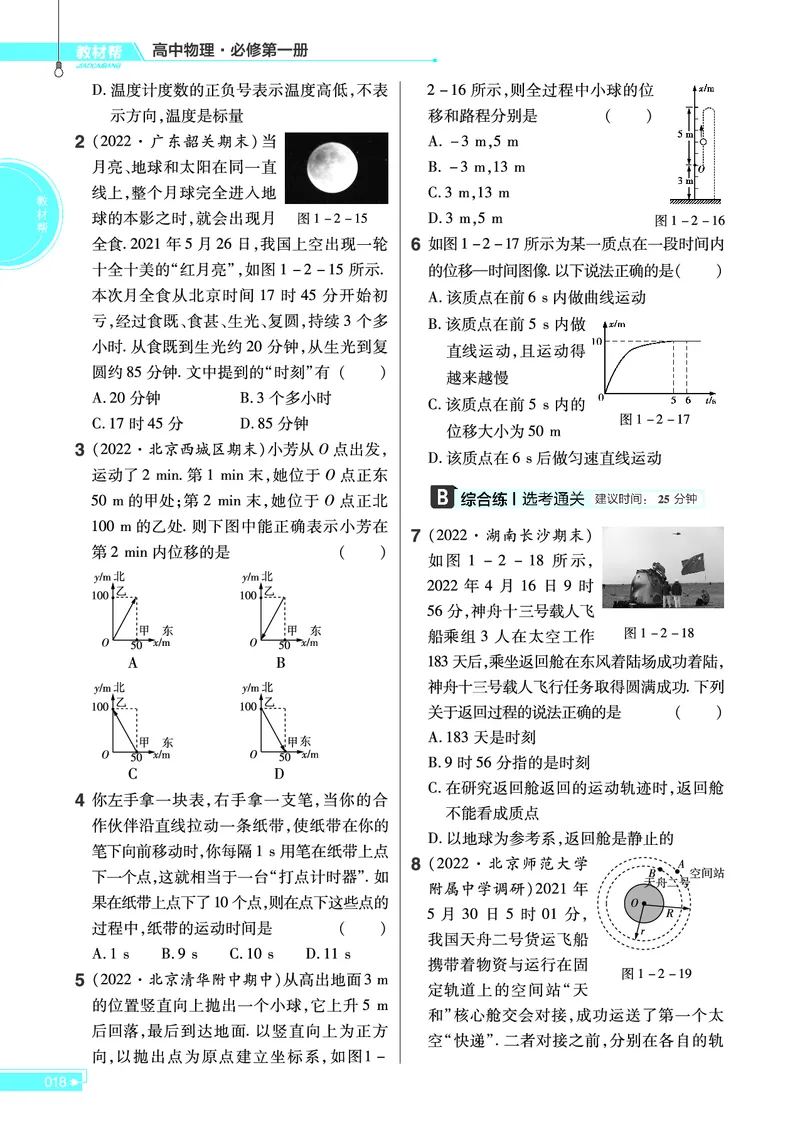 教材帮
JIAOCAIBANG
高中物理·必修第一册
教
材
帮
D. 温度计度数的正负号表示温度高低,不表
示方向,温度是标量
2 (2022·广东韶关期末)当
月亮、地球和太阳在同一直
线上,整个月球完全进入地
球的本影之时,就会出现月
图1-2-15
全食. 2021 年 5 月 26 日,我国上空出现一轮
十全十美的“红月亮”,如图 1-2-15 所示.
本次月全食从北京时间 17 时 45 分开始初
亏,经过食既、食甚、生光、复圆,持续 3 个多
小时. 从食既到生光约 20 分钟,从生光到复
圆约 85 分钟. 文中提到的“时刻”有 (  )
A. 20 分钟 B. 3 个多小时
C. 17 时 45 分 D. 85 分钟
3 (2022·北京西城区期末)小芳从 O 点出发,
运动了 2 min. 第 1 min 末,她位于 O 点正东
50 m 的甲处;第 2 min 末,她位于 O 点正北
100 m 的乙处. 则下图中能正确表示小芳在
第 2 min 内位移的是 (  )
y/m 北
100 乙
甲 东
O 50 x/m
A
y/m 北
100 乙
甲 东
O 50 x/m
B
y/m 北
100 乙
甲 东
O 50 x/m
C
y/m 北
100 乙
甲 东
O 50 x/m
D
4 你左手拿一块表,右手拿一支笔,当你的合
作伙伴沿直线拉动一条纸带,使纸带在你的
笔下向前移动时,你每隔 1 s 用笔在纸带上点
下一个点,这就相当于一台“打点计时器”. 如
果在纸带上点下了 10 个点,则在点下这些点的
过程中,纸带的运动时间是 (  )
A. 1 s B. 9 s C. 10 s D. 11 s
5 (2022·北京清华附中期中)从高出地面 3 m
的位置竖直向上抛出一个小球,它上升 5 m
后回落,最后到达地面. 以竖直向上为正方
向,以抛出点为原点建立坐标系,如图 1-
018
2-16 所示,则全过程中小球的位
移和路程分别是 (  )
A. -3 m,5 m
B. -3 m,13 m
C. 3 m,13 m
D. 3 m,5 m
x/m
5 m
O
3 m
图1-2-16
6 如图 1-2-17 所示为某一质点在一段时间内
的位移—时间图像. 以下说法正确的是(  )
A. 该质点在前 6 s 内做曲线运动
B. 该质点在前 5 s 内做
直线运动,且运动得
越来越慢
C. 该质点在前 5 s 内的
位移大小为 50 m
D. 该质点在 6 s 后做匀速直线运动
x/m
10
0 5 6 t/s
图1-2-17
B 综合练 选考通关 建议时间: 25 分钟
7 (2022·湖南长沙期末)
如图 1-2-18 所示,
2022 年 4 月 16 日 9 时
56 分,神舟十三号载人飞
船乘组 3 人在太空工作
图1-2-18
183 天后,乘坐返回舱在东风着陆场成功着陆,
神舟十三号载人飞行任务取得圆满成功. 下列
关于返回过程的说法正确的是 (  )
A. 183 天是时刻
B. 9 时 56 分指的是时刻
C. 在研究返回舱返回的运动轨迹时,返回舱
不能看成质点
D. 以地球为参考系,返回舱是静止的
8 (2022·北京师范大学
附属中学调研)2021 年
5 月 30 日 5 时 01 分,
我国天舟二号货运飞船
携带着物资与运行在固
定轨道上的空间站“天
和”核心舱交会对接,成功运送了第一个太
空“快递”. 二者对接之前,分别在各自的轨
A
B 空间站
天舟二号
O
R
r
图1-2-19